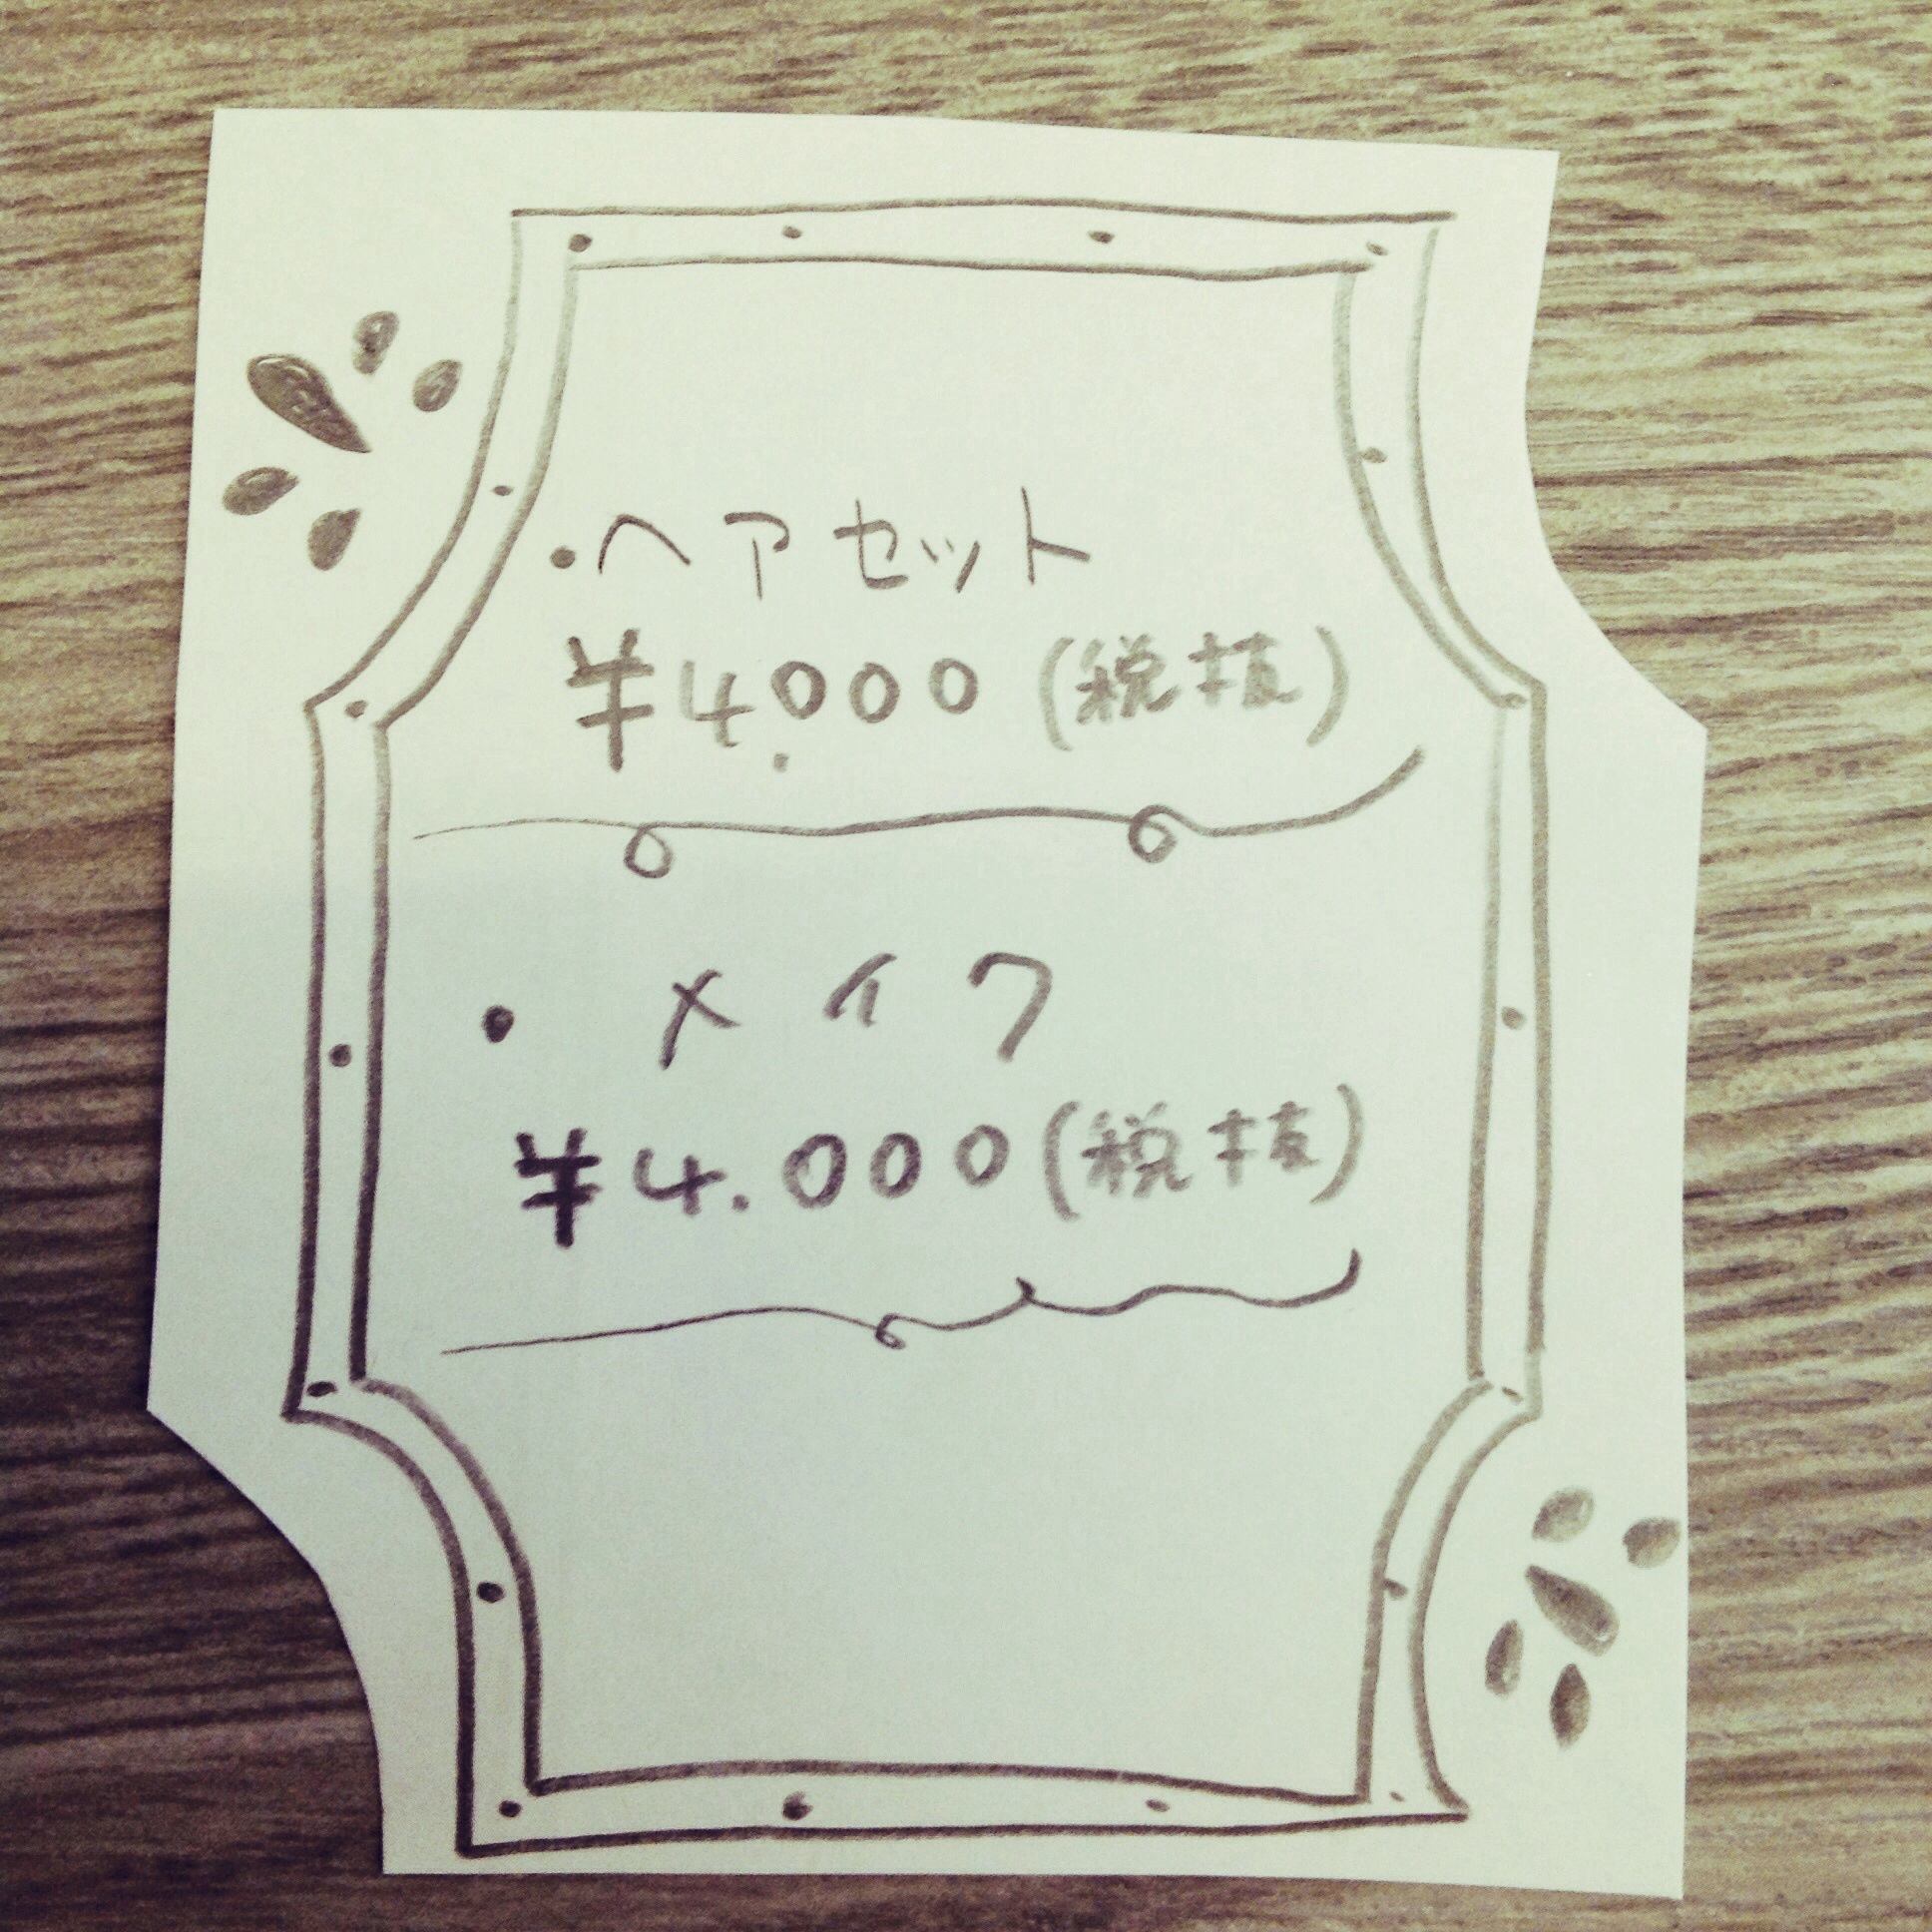 ・ヘアセット
¥4.000(税抜)
・メイク
¥4.000(税抜)